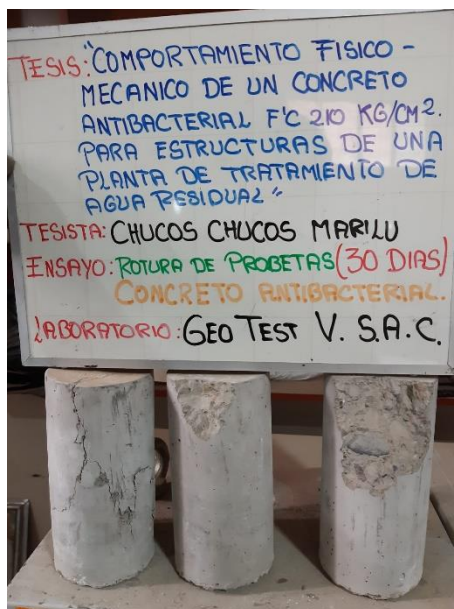 TESIS: "COMPORTAMIENTO FISICO -
MECANICO DE UN CONCRETO
ANTIBACTERIAL F'C 210 KG/CM2.
PARA ESTRUCTURAS DE UNA
PLANTA DE TRATAMIENTO DE
AGUA RESIDUAL"
TESISTA: CHUCOS CHUCOS MARILU
ENSAYO: ROTURA DE PROBETAS (30 DIAS)
CONCRETO ANTIBACTERIAL.
LABORATORIO: GEO TEST V. S.A.C.